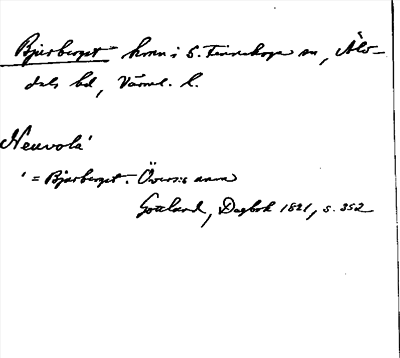 Bjurberget hmn i S. Finnskoga sn, Älv-
dals hd, Värml. l.
Neuvola¹
¹ = Bjurberget. Övers:s anm
Gottlund, Dagbok 1821, s. 352